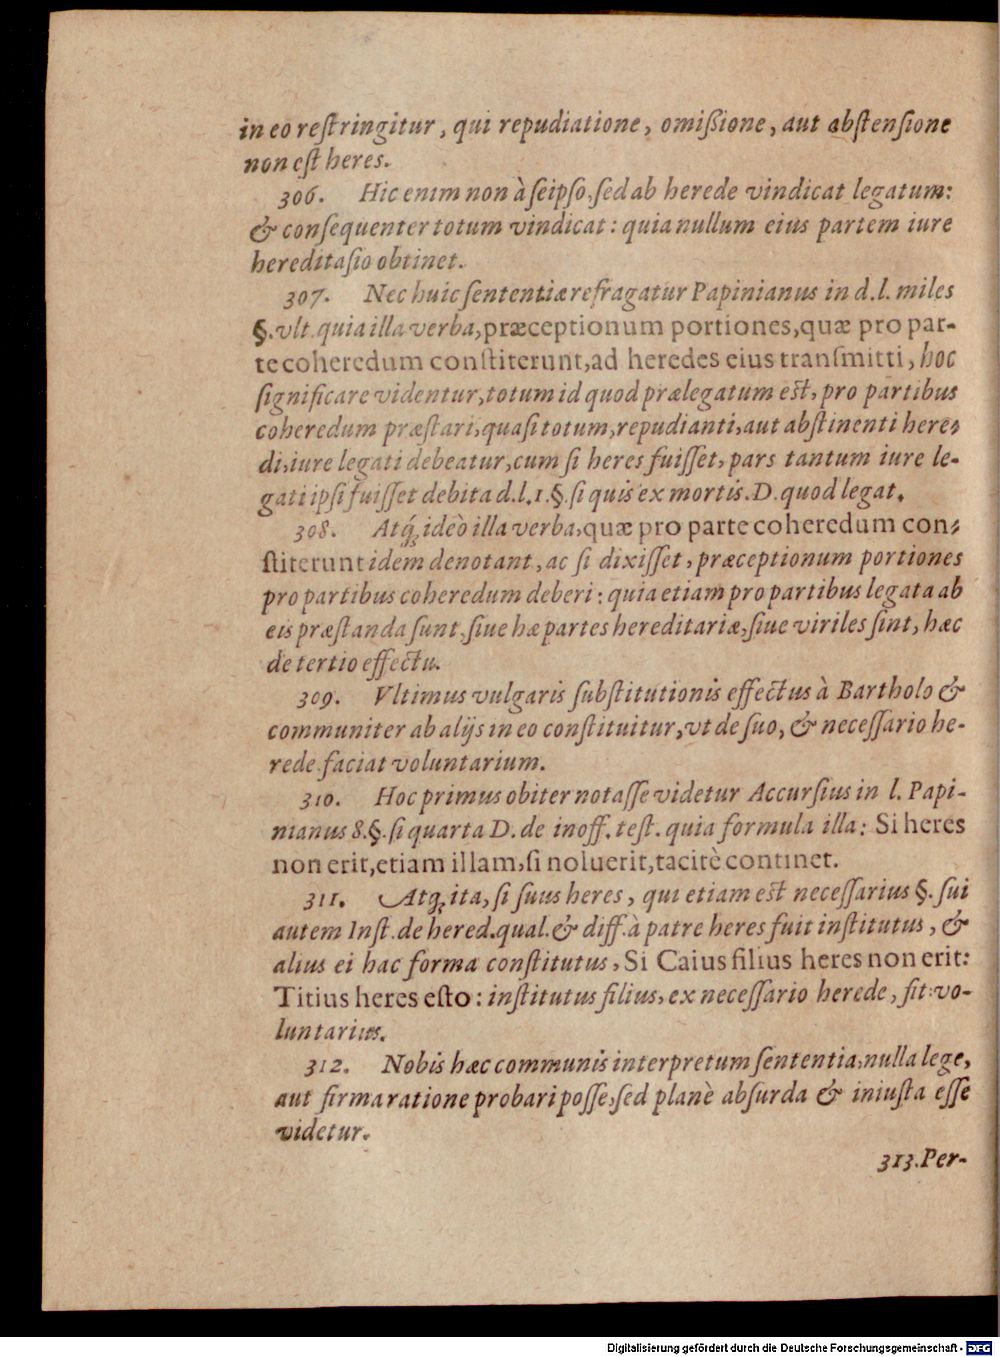 in eo reſtringitur, qui repudiatione, omiſsione, aut abſtenſione
non eſt heres.
306. Hic enim non à ſeipſo, ſed ab herede vindicat legatum:
& conſequenter totum vindicat: quia nullum eius partem iure
hereditaſio obtinet.
307. Nec huic ſententiæ refragatur Papinianus in d.l. miles
§. vlt. quia illa verba, præceptionum portiones, quæ pro par-
te coheredum conſtiterunt, ad heredes eius tranſmitti, hoc
ſignificare videntur, totum id quod prælegatum eſt, pro partibus
coheredum præſtari, quaſi totum, repudianti, aut abſtinenti here-
di, iure legati debeatur, cum ſi heres fuiſſet, pars tantum iure le-
gati ipſi fuiſſet debita d.l.1.§. ſi quis ex mortis. D. quod legat.
308. Atq́; ideò illa verba, quæ pro parte coheredum con-
ſtiterunt idem denotant, ac ſi dixiſſet, præceptionum portiones
pro partibus coheredum deberi: quia etiam pro partibus legata ab
eis præſtanda ſunt, ſiue hæ partes hereditariæ, ſiue viriles ſint, hæc
de tertio effectu.
309. Vltimus vulgaris ſubſtitutionis effectus à Bartholo &
communiter ab alijs in eo conſtituitur, vt de ſuo, & neceſſario he-
rede faciat voluntarium.
310. Hoc primus obiter notaſſe videtur Accurſius in l. Papi-
nianus 8.§. ſi quarta D. de inoff. teſt. quia formula illa: Si heres
non erit, etiam illam, ſi noluerit, tacitè continet.
311. Atq; ita, ſi ſuus heres, qui etiam eſt neceſſarius §. ſui
autem Inſt. de hered. qual. & diff. à patre heres fuit inſtitutus, &
alius ei hac forma conſtitutus, Si Caius filius heres non erit:
Titius heres eſto: inſtitutus filius, ex neceſſario herede, fit vo-
luntarius.
312. Nobis hæc communis interpretum ſententia, nulla lege,
aut firma ratione probari poſſe, ſed planè abſurda & iniuſta eſſe
videtur.
313. Per-
Digitalisierung gefördert durch die Deutsche Forschungsgemeinschaft - DFG